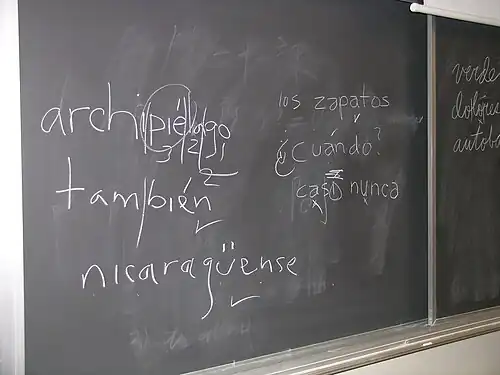 archipiélago
3 2 1
2
también
nicaragüense
los zapatos
¿Cuándo?
casi nunca
verde
dolores